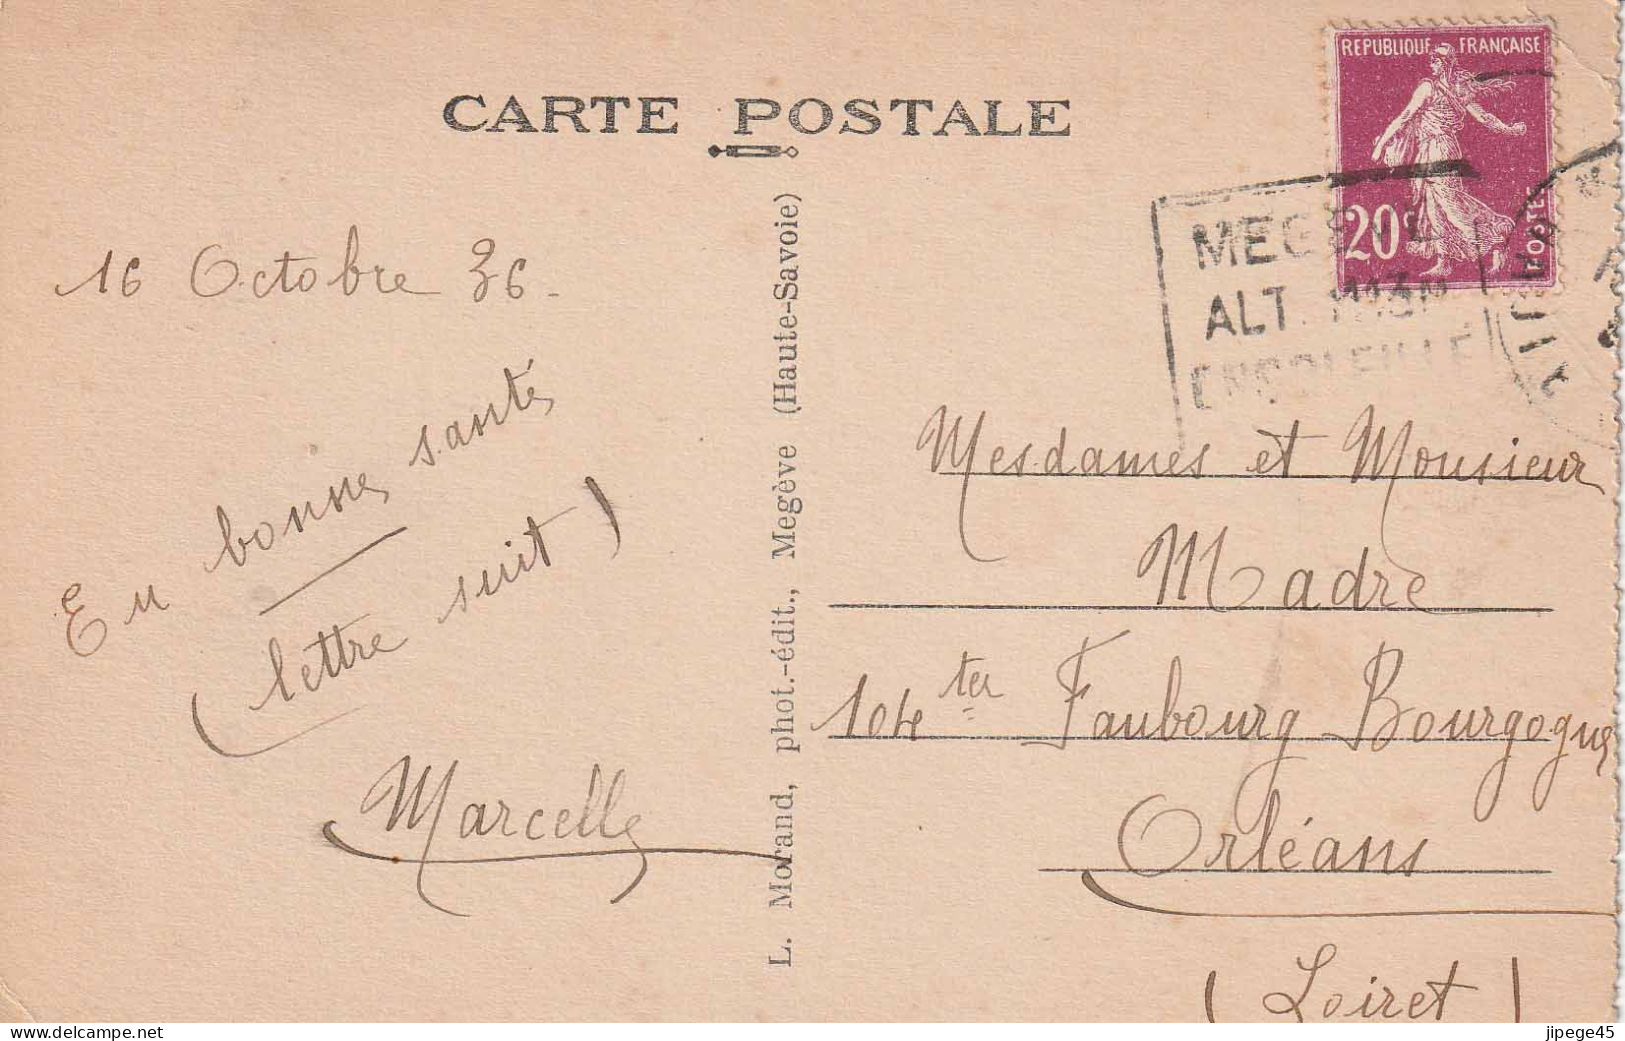 CARTE POSTALE
REPUBLIQUE FRANÇAISE
20c
POSTES
MEGEVE
ALT. 1113M
ENSOLEILLE
16 Octobre 36.
En bonne santé
(lettre suit)
Marcelle
L. Morand, phot.-édit., Megève (Haute-Savoie)
Mesdames et Monsieur
Madre
104 ter Faubourg Bourgogne
Orléans
(Loiret)
delcampe.net
jipege45